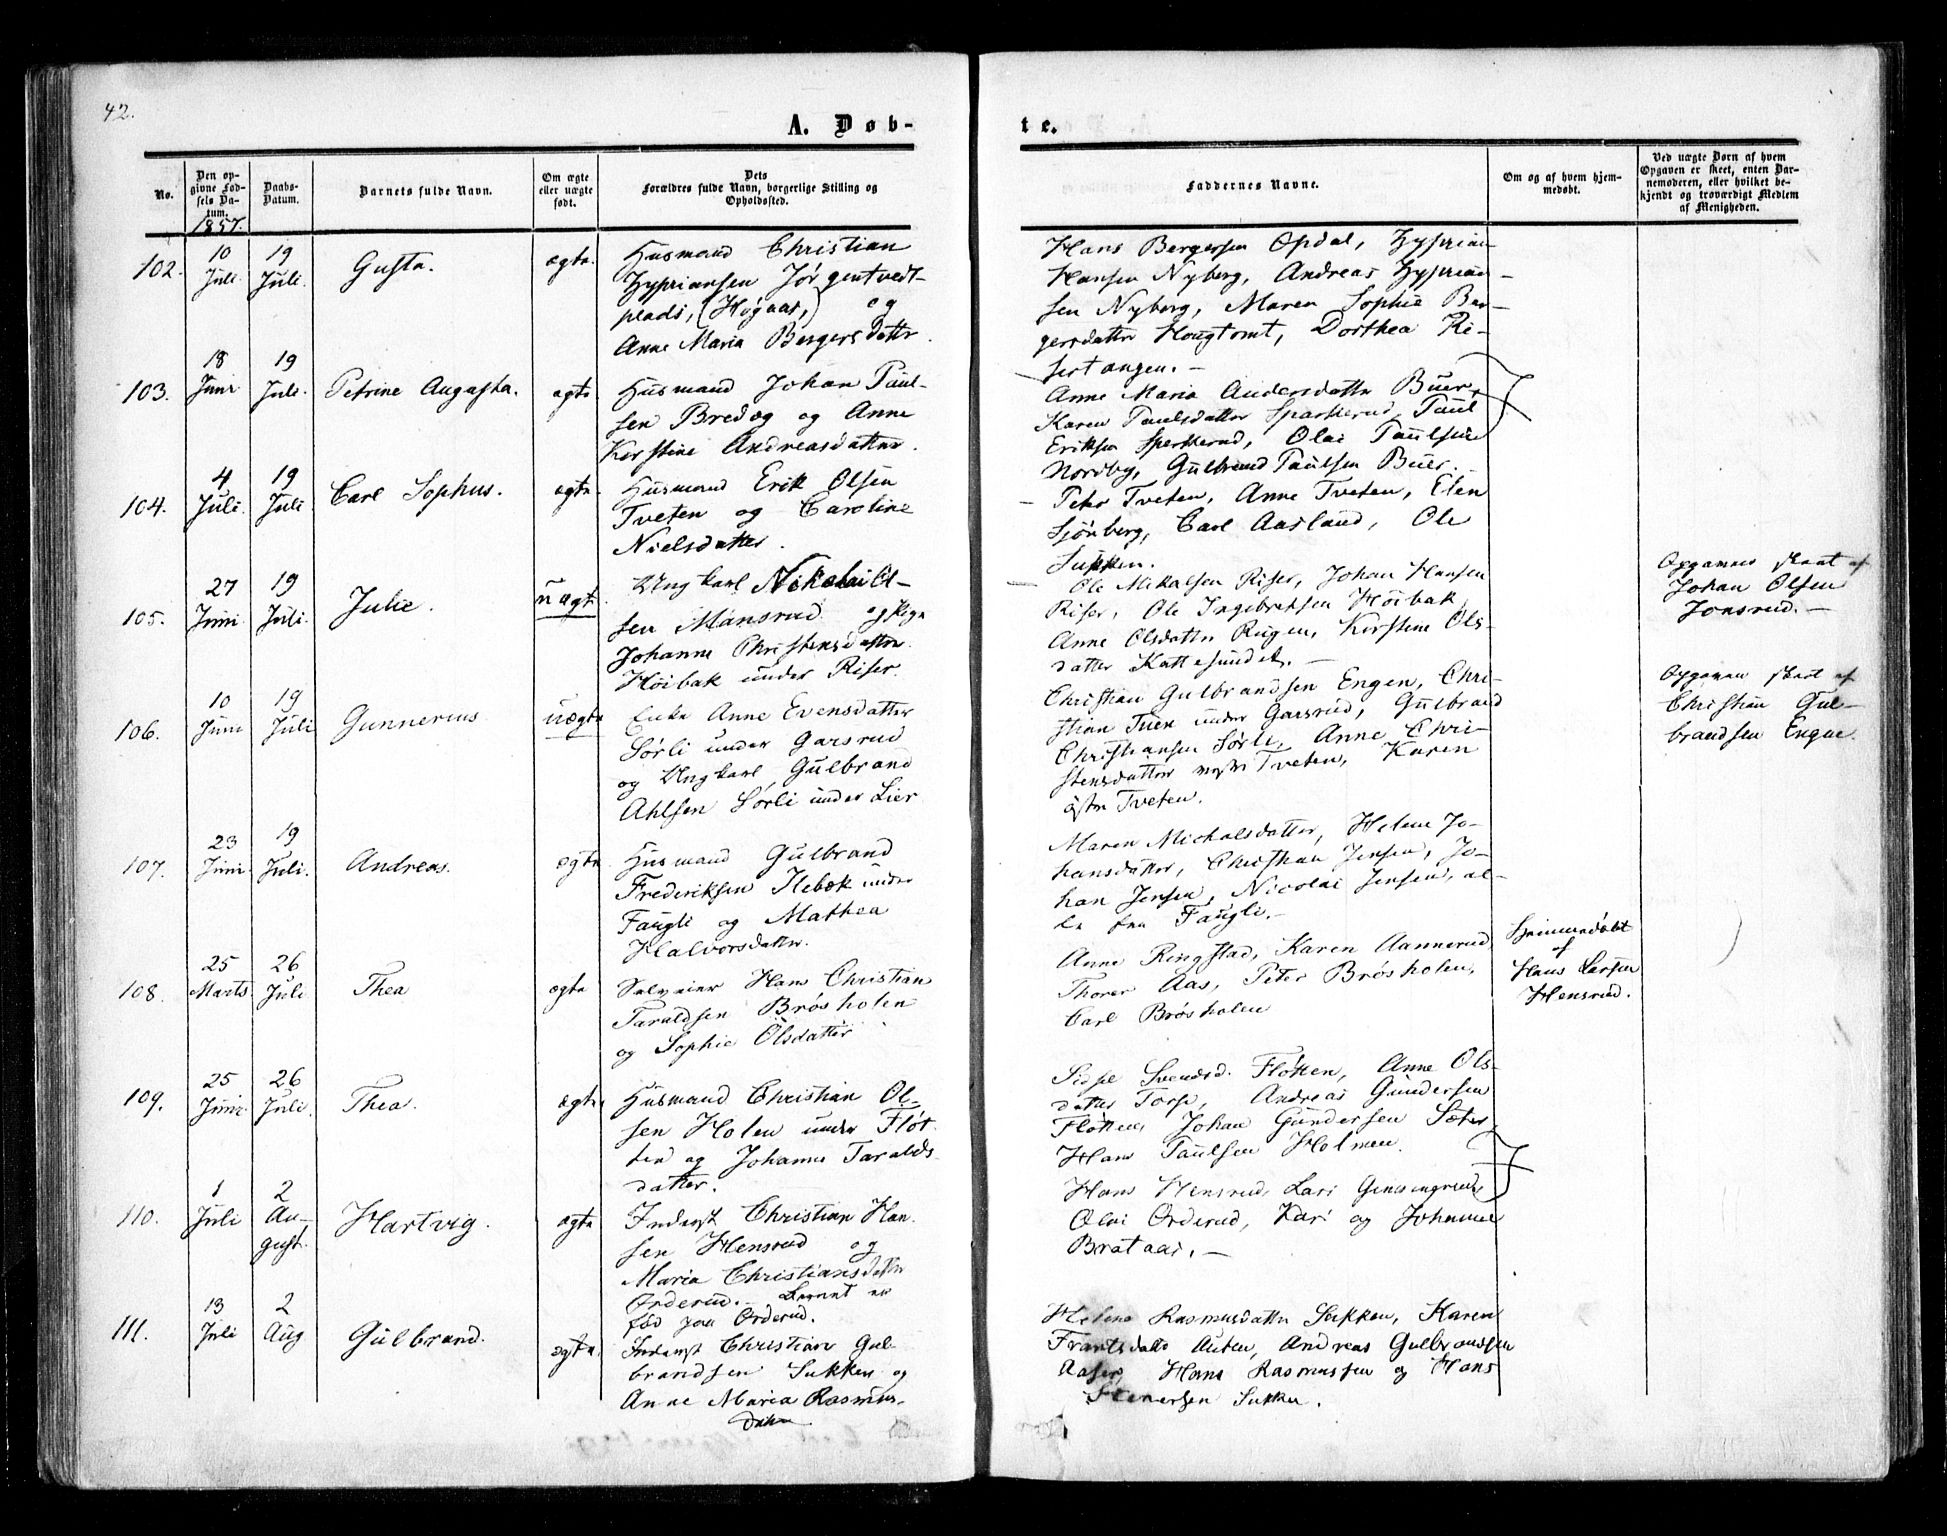 42.
A. Døb-
te.
No.
Den op-
givne Fød-
sels Da-
tum.
1857.
Daabs-
Datum.
Barnets fulde Navn.
Om ægte
eller uægte
født.
Dets
Forældres fulde Navn, borgerlige Stilling og
Opholdssted.
Faddernes Navne.
Om og af hvem hjem-
medøbt.
Ved uægte Børn af hvem
Opgaven er skeet, enten Bar-
nemoderen, eller hvilket be-
kjendt og troværdigt Medlem
af Menigheden.
102.
10
Juli.
19
Juli.
Gusta.
ægte.
Husmand Christian
Zypriansen Jørgentvedt-
plads, (Høgaas,) og
Anne Maria Bergersdatter.
Hans Bergersen Opdal, Zyprian
Hansen Nyberg, Andreas Zyprian-
sen Nyberg, Maren Sophie Ber-
gersdatter Hougtomt, Dorthea Ri-
sertangen.-
103.
18
Juni
19
Juli.
Petrine Augusta.
ægte
Husmand Johan Paul-
sen Bredøg og Anne
Kerstine Andreasdatter.
Anne Maria Andersdatter Buer,
Karen Paulsdatter Sparkerud, Paul
Eriksen Sperkerud, Olai Paulsen
Nordby, Gulbrand Paulsen Buer.
104.
4
Juli.
19
Juli
Carl Sophus.
ægte.
Husmand Erik Olsen
Tveten og Caroline
Nielsdatter.
Peter Tveten, Anne Tveten, Elen
Sjønberg, Carl Aasland, Ole
Sukken.
105.
27
Juni
19
Juli.
Julie.
uægte.
Ungkarl Nikolai Ol-
sen Mansrud og Pige
Johanne Christensdatter
Høibak under Riser.
Ole Mikalsen Riser, Johan Hansen
Riser, Ole Ingebretsen Høibak,
Anne Olsdatter Rugen, Kerstine Ols-
datter Kattesundet.-
Opgaven skeet af
Johan Olsen
Jonsrud.-
106.
10
Juni
19
Juli
Gunnerius
uægte
Enke Anne Evensdatter
Sørli under Garsrud
og Ungkarl Gulbrand
Ahlsen Sørli under Lier
Christian Gulbrandsen Engen, Chri-
stian Tuen under Garsrud, Gulbrand
Christiansen Sørli, Anne Chri-
stensdatter Tveten, Karen
østre Tveten.
Opgaven skeet af
Christian Gul-
brandsen Engen.
107.
23
Juni.
19
Juli.
Andreas.
ægte
Husmand Gulbrand
Frederiksen Ilebæk under
Faugli og Mathea
Halvorsdatter.
Maren Michalsdatter, Helene Jo-
hansdatter, Christian Jensen, Jo-
han Jensen, Nicolai Jensen, al-
le fra Faugli.-
108.
25
Marts
26
Juli
Thea
ægte
Selveier Hans Christian
Taraldsen Brøsholen
og Sophie Olsdatter
Anne Ringstad, Karen Aannerud
Thorer Aas, Peter Brøsholen,
Carl Brøsholen
Hjemmedøbt
af
Hans Larsen
Hensrud.
109.
25
Juni.
26
Juli.
Thea.
ægte
Husmand Christian Ol-
sen Holen under Fløt-
ten og Johanne Taralds-
datter.
Sidse Svendsd. Fløtten, Anne Ols-
datter Torp, Andreas Gundersen
Fløtten, Johan Gundersen Sæter,
Hans Paulsen Holmen.
110.
1
Juli
2
Au-
gust.
Hartvig.
ægte
Inderst Christian Han-
sen Hensrud og
Maria Christiansdatter
Orderud.-
fød paa Orderud.
Hans Hensrud, Lars
Olai Orderud, Kari og Johanne
Brataas.-
111.
13
Juli
2
Aug
Gulbrand.
ægte.
Inderst Christian Gul-
brandsen Sukken og
Anne Maria Rasmus-
datter
Helene Rasmusdatter Sukken, Karen
Frantsdatter Auten, Andreas Gulbrandsen
Aaser, Hans Rasmussen og Hans
Stenersen Sukken.